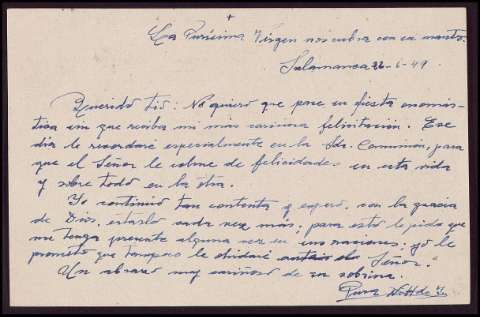 +
La Purísima Virgen nos cubra con su manto.
Salamanca 26-6-49
Querido tío: No quiero que pase su fiesta onomás-
tica sin que reciba mi más cariñosa felicitación. Ese
día le recordaré especialmente en la Sda. Comunión, para
que el Señor le colme de felicidades en esta vida
y sobre todo en la otra.
Yo continúo tan contenta y espero, con la gracia
de Dios, estarlo cada vez más; para esto le pido que
me tenga presente alguna vez en sus oraciones; yo le
prometo que tampoco le olvidaré ante el Señor.
Un abrazo muy cariñoso de su sobrina.
Pura